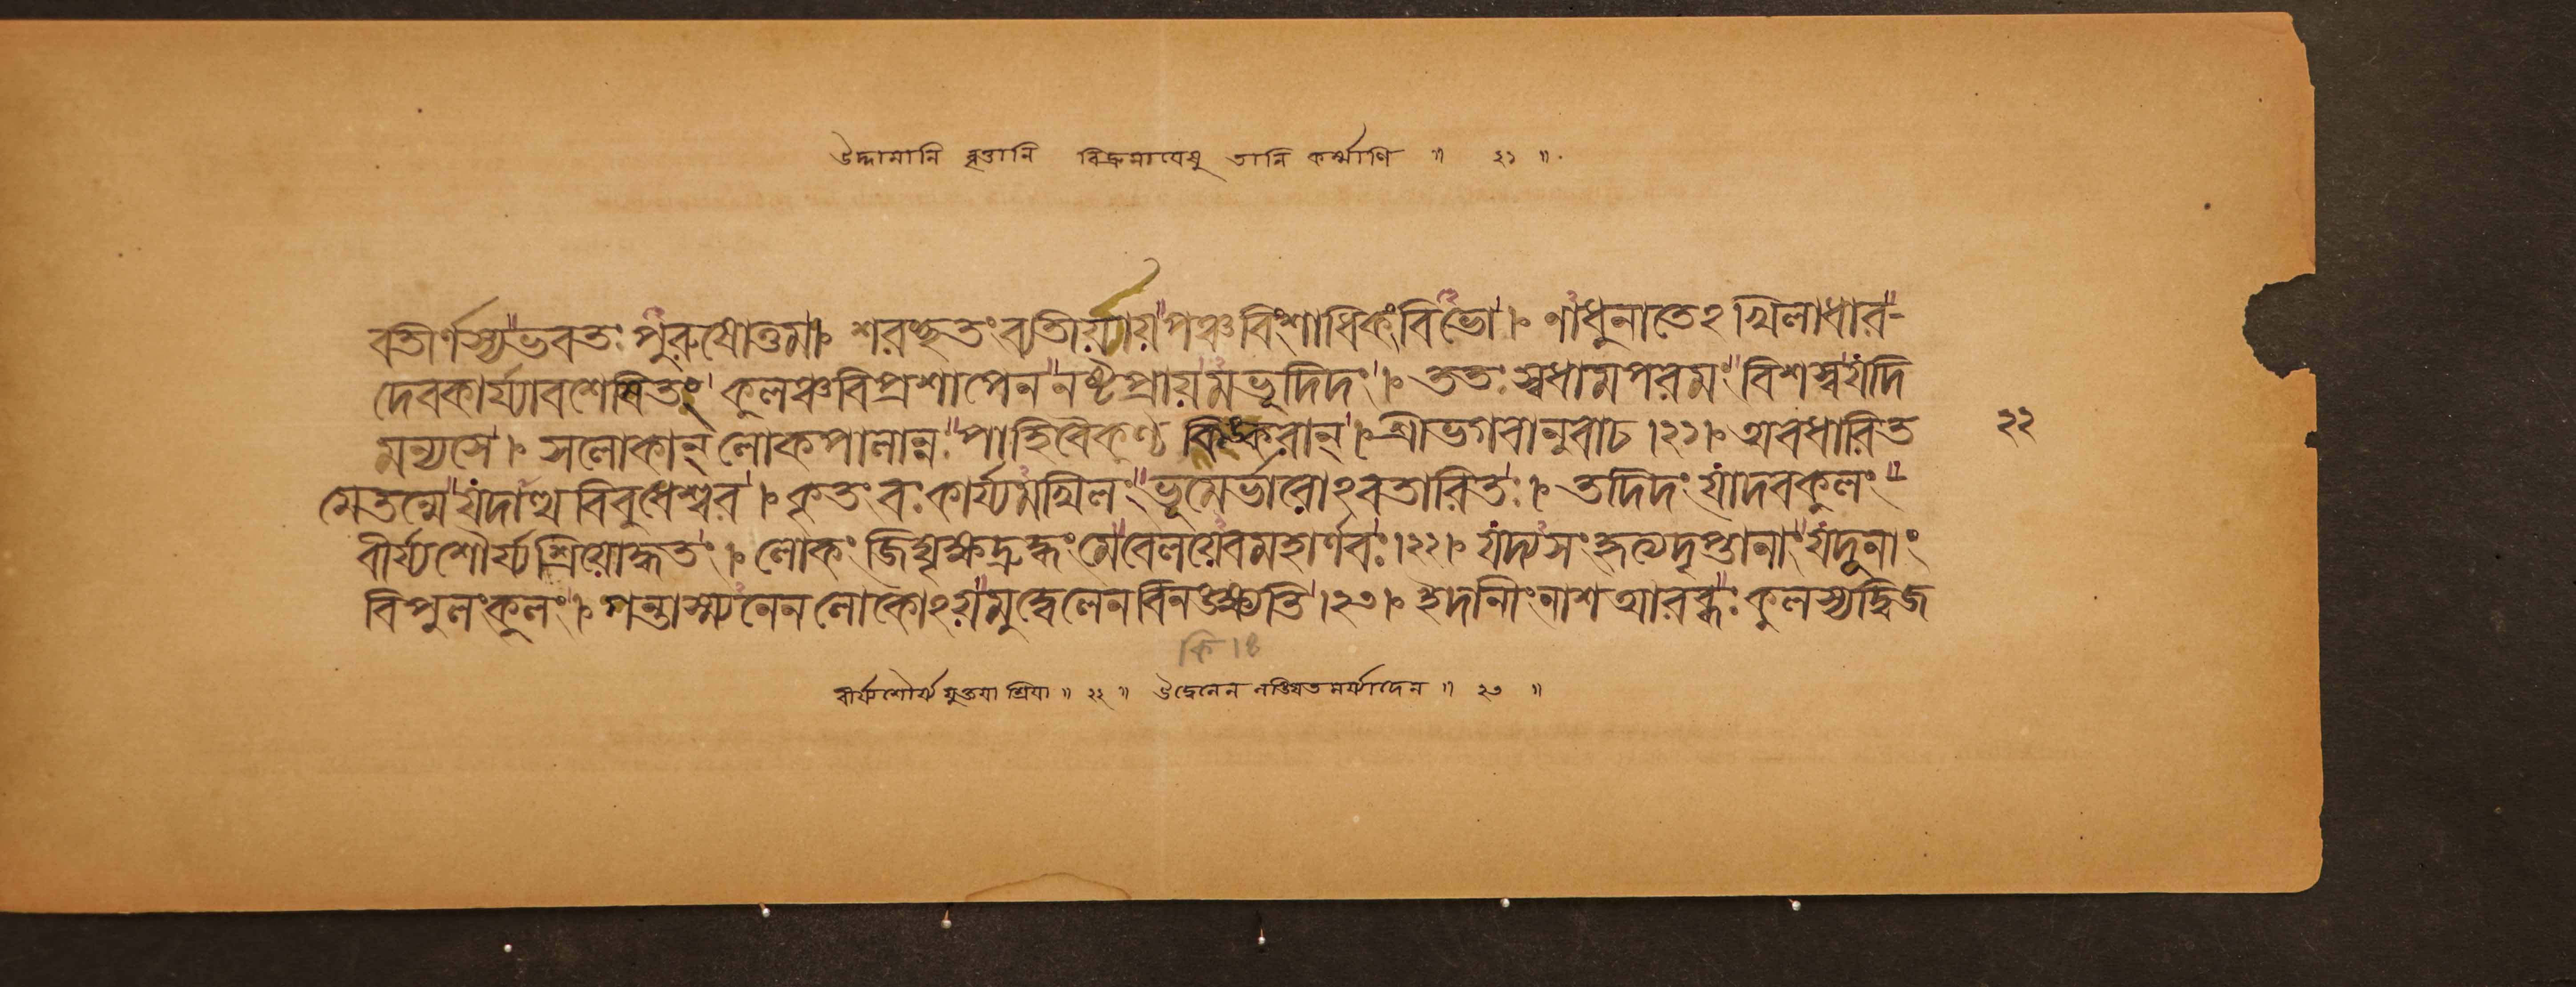 উদ্দামানি বৃত্তানি বিক্রমা যেষু তানি কর্ম্মাণি ॥ ২১ ॥
বতীর্ণস্যভবতঃ পুরুষোত্তম। শরচ্ছতংব্যতীয়ায়পঞ্চবিংশাধিকংবিভো। নাধুনাতেঽখিলাধার-
দেবকার্য্যাবশেষিতং কুলঞ্চবিপ্রশাপেননষ্টপ্রায়মভূদিদং। ততঃস্বধামপরমংবিশস্বযদি
মন্যসে। সলোকান্ লোকপালান্নঃপাহিবৈকুণ্ঠ কিঙ্করান্। শ্রীভগবানুবাচ।২১। অবধারিত
২২
মেতন্মেযদাত্থবিবুধেশ্বর। কৃতংবঃকার্য্যমখিলংভূমের্ভারোঽবতারিতঃ। তদিদংযাদবকুলং
বীর্য্যশৌর্য্যশ্রিয়োদ্ধতং। লোকংজিঘৃক্ষদ্রুদ্ধংমেবেলয়েবমহার্ণবঃ।২২। যদ্যসংহৃত্যদৃপ্তানাংযদূনাং
বিপুলংকুলং। গন্তাস্ম্যনেনলোকোঽয়মুদ্বেলেনবিনঙ্ক্ষ্যতি।২৩। ইদানীংনাশআরব্ধঃকুলস্যদ্বিজ
কি ১৪
বীর্য্যশৌর্য্যযুক্তয়া শ্রিয়া ॥ ২২ ॥ উদ্বেলেন লঙ্ঘিতমর্য্যাদেন ॥ ২৩ ॥